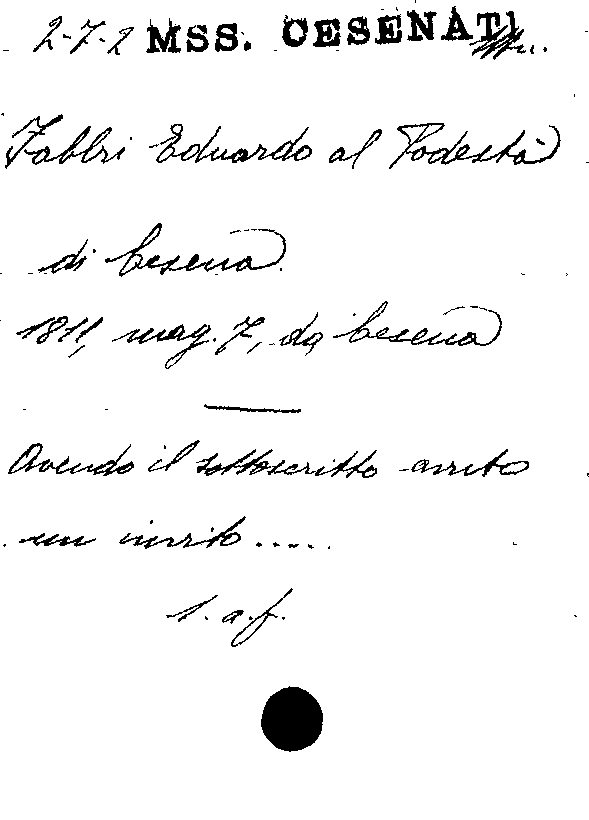 2-7-2 MSS. CESENATI
Fabbri Eduardo al Podestà
di Cesena
1811, mag. 7, da Cesena
Avendo il sottoscritto avuto
un invito.....
1. a.f.